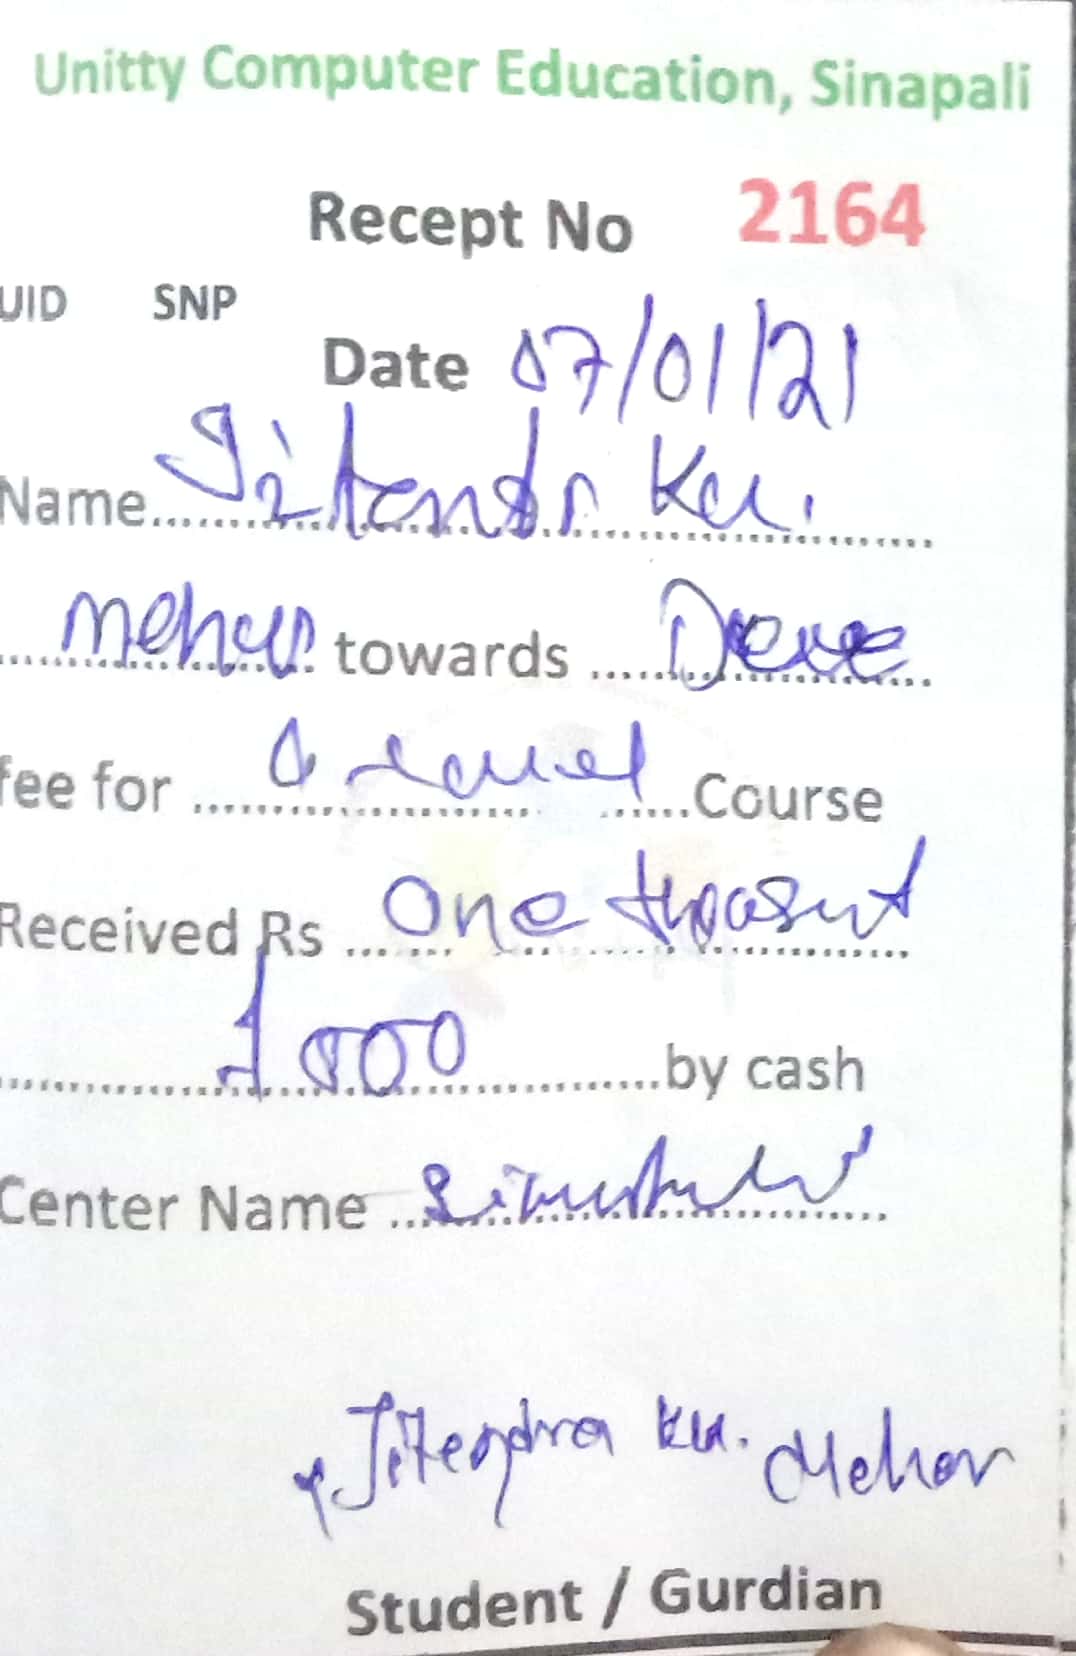 Unitty Computer Education, Sinapali
Recept No 2164
UID SNP
Date 07/01/21
Name.......Jitendr Ku.
Meher towards ....
fee for ....O Level....Course
Received Rs ....One
1000 ....by cash
Center Name ....
Jitendra Ku. Meher
Student / Gurdian